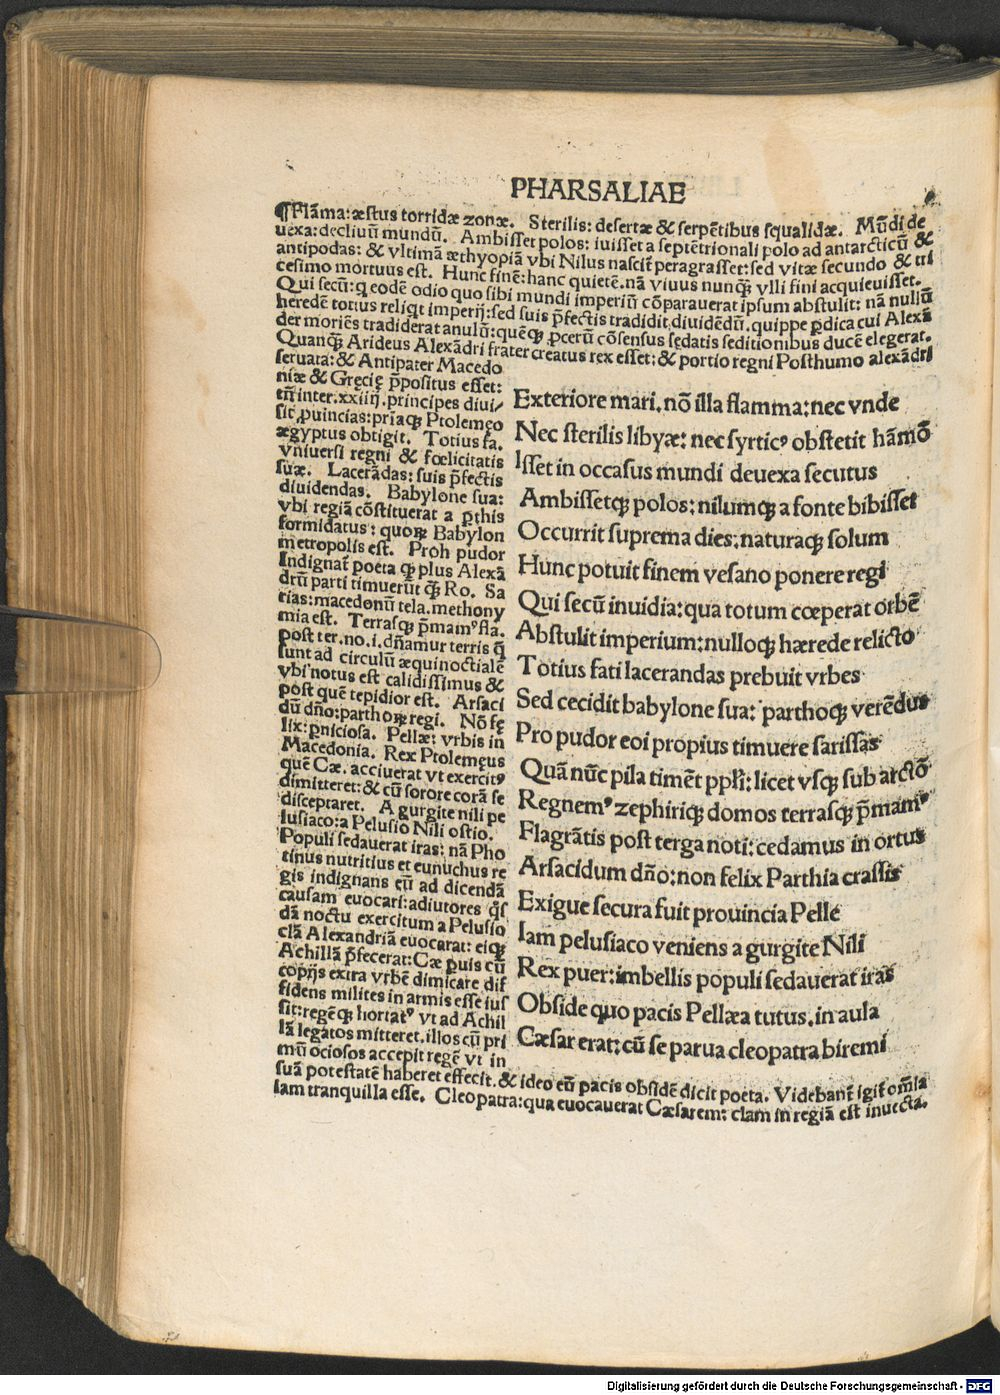 PHARSALIAE
¶Flãma: æstus torridæ zonæ. Sterilis: desertæ & serpẽtibus squalidæ. Mũdi de
uexa: decliuũ mundũ. Ambisset polos: iuisset a septẽtrionali polo ad antarcticũ &
antipodas: & vltimã æthyopiã vbi Nilus nascit̃ peragrasset: sed vitæ secundo & tri
cesimo mortuus est. Hunc finẽ: hanc quietẽ. nã viuus nunqꝫ vlli fini acquieuisset.
Qui secũ: q eodẽ odio quo sibi mundi imperiũ cõparauerat ipsum abstulit: nã nullũ
heredẽ totius reliqt imperij: sed suis p̃fectis tradidit diuidẽdũ. quippe ꝑdica cui Alexã
der moriẽs tradiderat anulũ: quẽqꝫ ꝓcerũ cõsensus sedatis seditionibus ducẽ elegerat.
Quanqꝫ Arideus Alexãdri frater creatus rex esset: & portio regni Posthumo alexãdri
seruata: & Antipater Macedo
niæ & Gręcię p̃positus esset:
tñ inter .xxiiij. principes diui/
sit ꝓuincias: priaqꝫ Ptolemęo
ægyptus obtigit. Totius fa.
vniuersi regni & fœlicitatis
suæ. Lacerãdas: suis p̃fectis
diuidendas. Babylone sua:
vbi regiã cõstituerat a ꝑthis
formidatus: quoꝝ Babylon
metropolis est. Proh pudor
Indignat̃ poeta qꝫ plus Alexã
drũ parti timuerũt qꝫ̃ Ro. Sa
rias: macedonũ tela. methony
mia est. Terrasqꝫ p̃mamꝰ fla.
post ter. no. i. dñamur terris q̃
sunt ad circulũ æquinoctialẽ
vbi notus est calidissimus &
post quẽ tepidior est. Arsaci
dũ dño: parthoꝝ regi. Nõ fę
lix: ꝑniciosa. Pellæ: vrbis in
Macedonia. Rex Ptolemęus
quẽ Cæ. acciuerat vt exercitꝰ
dimitteret: & cũ sorore corã se
disceptaret. A gurgite nili pe
lusiaco: a Pelusio Nili ostio.
Populi sedauerat iras: nã Pho
tinus nutritius et eunuchus re
gis indignans eũ ad dicendã
causam euocari: adiutores q̃s
dã noctu exercitum a Pelusio
clã Alexandriã euocarat: eiqꝫ
Achillã p̃fecerat: Cæ ꝓuis cũ
copijs extra vrbẽ dimicare dif
fidens milites in armis esse ius
sit: regẽqꝫ hortatꝰ vt ad Achil
lã legatos mitteret. illos cũ pri
mũ ociosos accepit regẽ vt in
suã potestatẽ haberet effecit. & ideo eũ pacis obsidẽ dicit poeta. Videbant̃ igit̃ om̃ia
iam tranquilla esse. Cleopatra: qua euocauerat Cæsarem: clam in regiã est inuecta.
Exteriore mari. nõ illa flamma: nec vnde
Nec sterilis libyæ: nec syrticꝰ obstetit hãmõ
Isset in occasus mundi deuexa secutus
Ambissetqꝫ polos: nilumqꝫ a fonte bibisset
Occurrit suprema dies: naturaqꝫ solum
Hunc potuit finem vesano ponere regi
Qui secũ inuidia: qua totum cœperat orbẽ
Abstulit imperium: nulloqꝫ hærede relicto
Totius fati lacerandas prebuit vrbes
Sed cecidit babylone sua: parthoqꝫ verẽdus
Pro pudor eoi propius timuere sarissas
Quã nũc pila timẽt ppłi: licet vsqꝫ sub arctõ
Regnemꝰ zephiriqꝫ domos terrasqꝫ p̃mamꝰ
Flagrãtis post terga noti: cedamus in ortus
Arsacidum dño: non felix Parthia crassis
Exigue secura fuit prouincia Pelle
Iam pelusiaco veniens a gurgite Nili
Rex puer: imbellis populi sedauerat iras
Obside quo pacis Pellæa tutus. in aula
Cæsar erat: cũ se parua cleopatra biremi
Digitalisierung gefördert durch die Deutsche Forschungsgemeinschaft - DFG